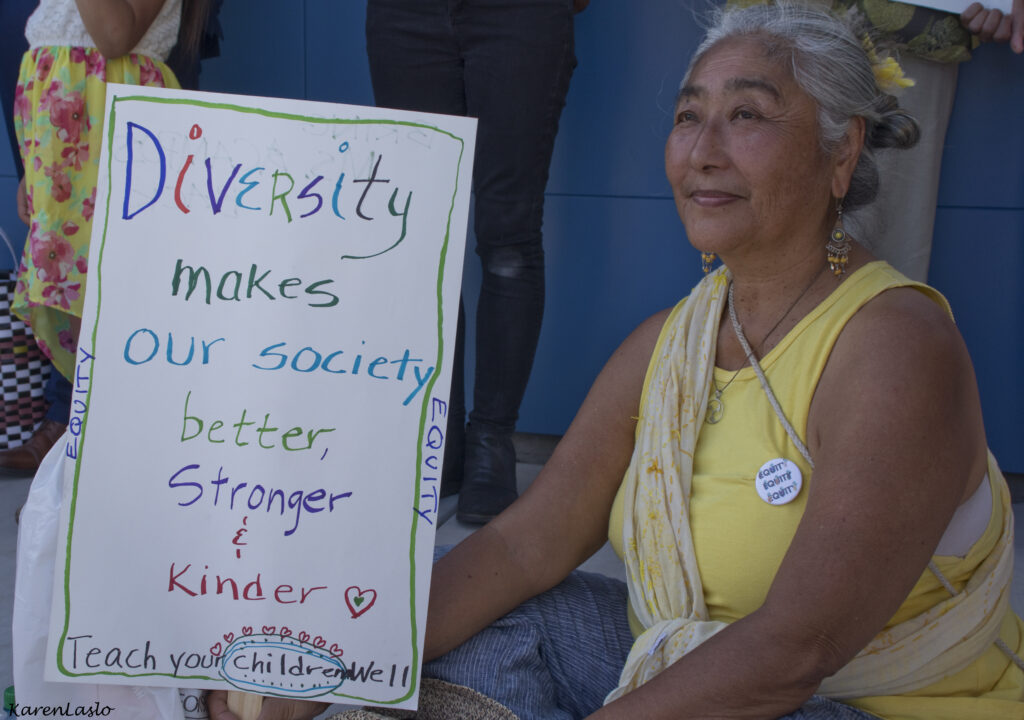 Diversity
makes
our society
better,
Stronger
&
Kinder
Teach your children Well
EQUITY
EQUITY
EQUITY
EQUITY
EQUITY
KarenLaslo